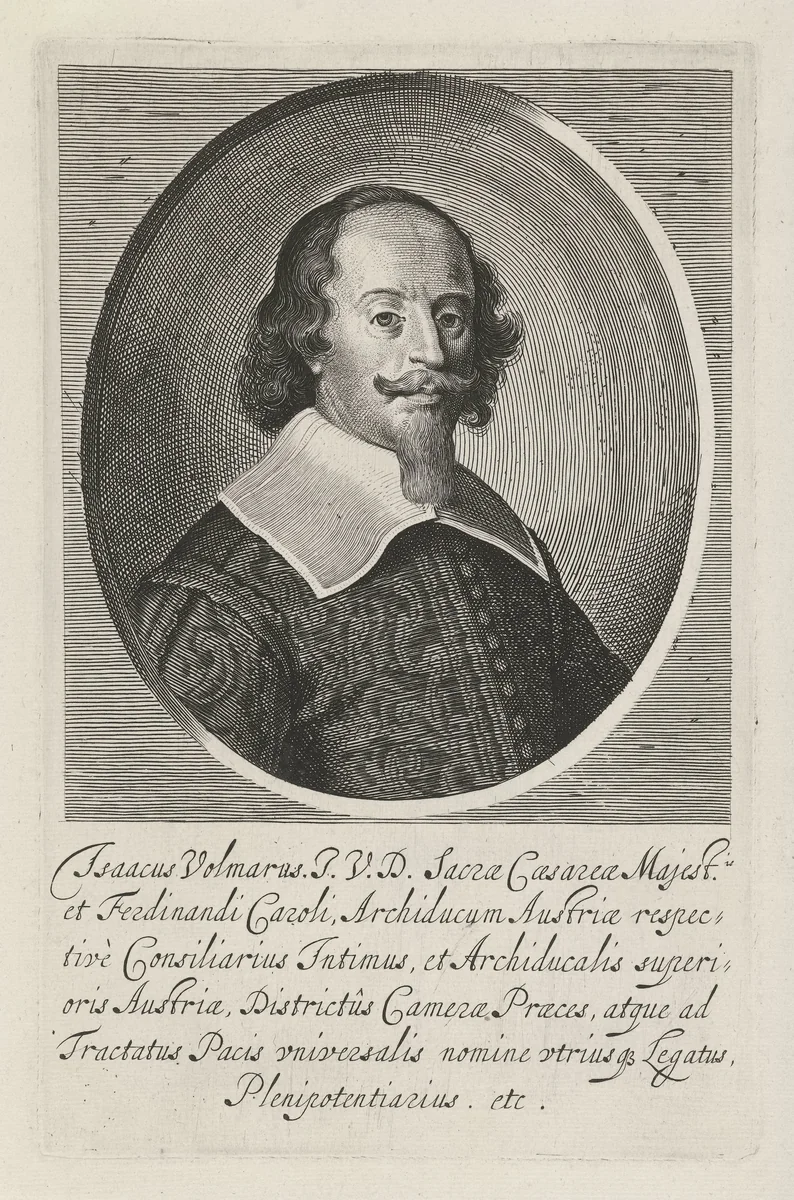 Isaacus Volmarus. I. V. D. Sacræ Cæsareæ Majest.is
et Ferdinandi Caroli, Archiducum Austriæ respec=
tivè Consiliarius Intimus, et Archiducalis superi=
oris Austriæ, Districtûs Cameræ Præces, atque ad
Tractatus Pacis vniversalis nomine vtriusqȝ Legatus,
Plenipotentiarius. etc.